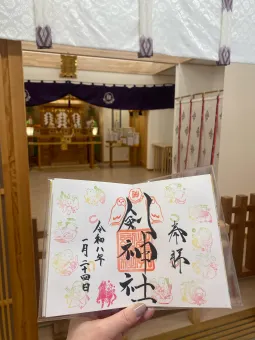 奉拝
剣神社
令和八年
一月二十四日